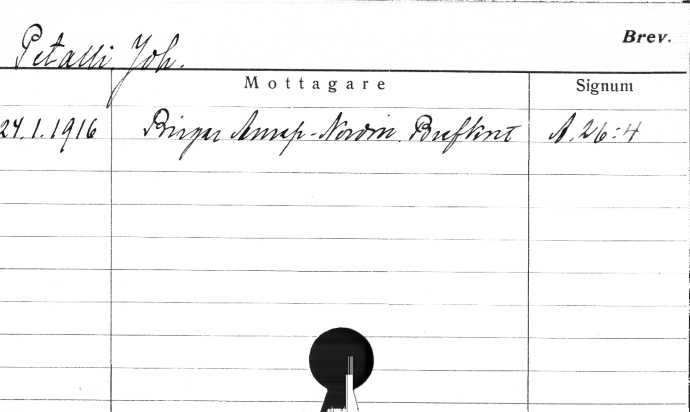 Petalli, Joh.
Brev.
Mottagare Signum
24.1.1916 Birger Amap-Nordin. Brefkort A. 26:4